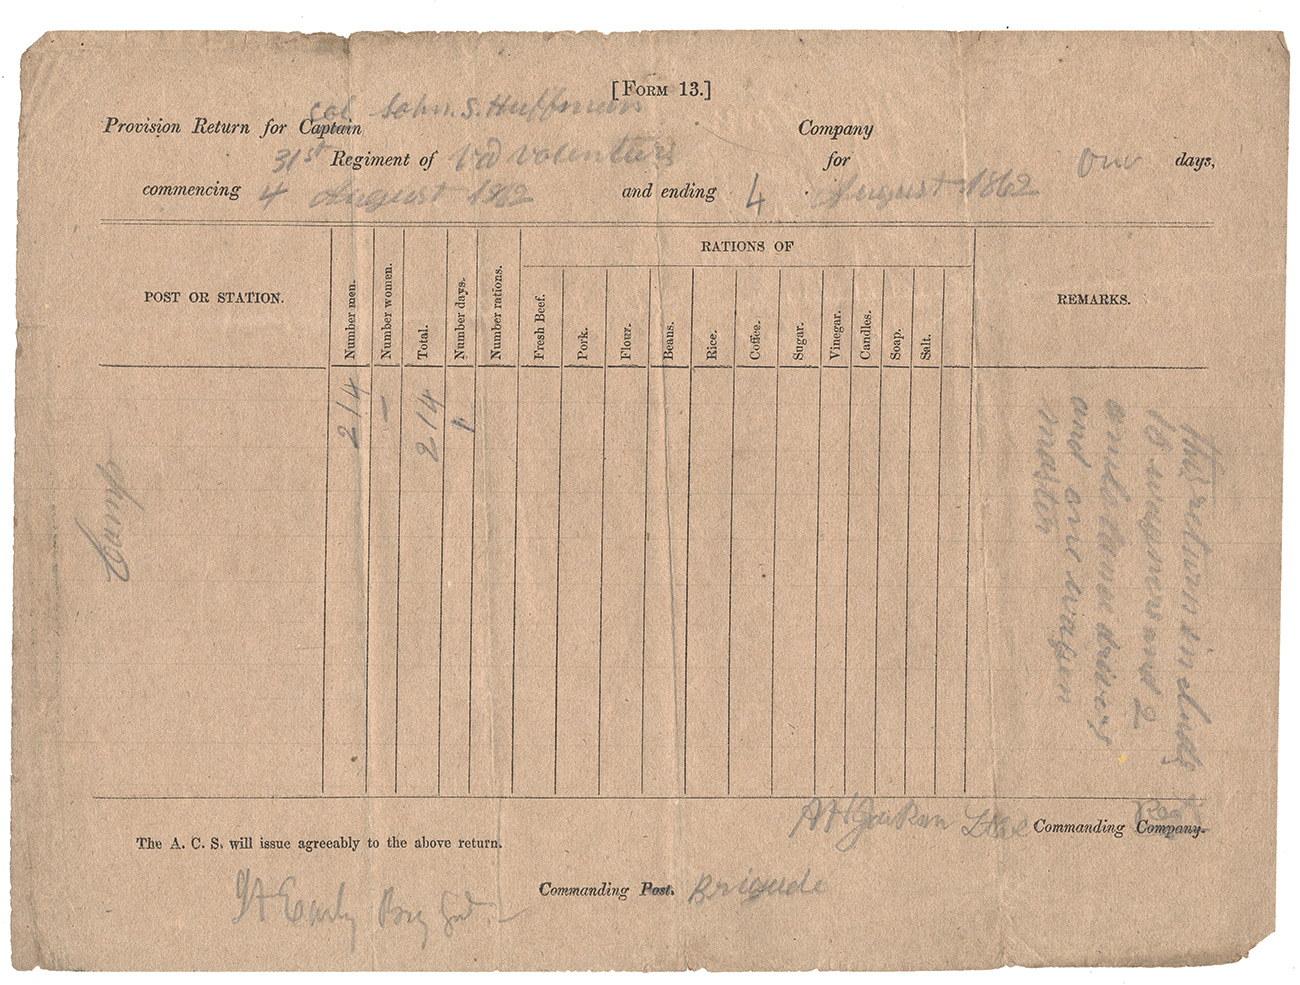 [FORM 13.]
Col John. S. Huffman
Provision Return for Captain Company
31st Regiment of Va Volenturs for One days,
commencing 4 August 1862 and ending 4 August 1862
RATIONS OF
POST OR STATION.
Number men.
Number women.
Total.
Number days.
Number rations.
Fresh Beef.
Pork.
Flour.
Beans.
Rice.
Coffee.
Sugar.
Vinegar.
Candles.
Soap.
Salt.
REMARKS.
Camp
214
–
214
1
this return includs
and 2
drivers
and one wagon
master
Regt
A H Jackson Commanding Company.
The A. C. S. will issue agreeably to the above return.
Commanding Post. Brigade
J A Early Brig Genl.